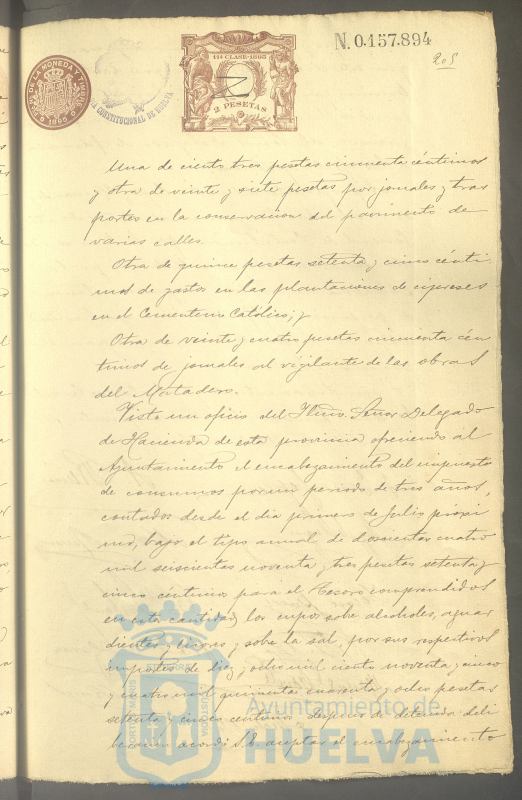 N. 0.157.894
205
11ª CLASE-1895
2 PESETAS
CONSTITUCIONAL DE HUELVA
Una de ciento tres pesetas cincuenta céntimos
y otra de veinte y siete pesetas por jornales y tras
portes en la conservacion del pavimento de
varias calles.
Otra de quince pesetas setenta y cinco cénti
mos de gastos en las plantaciones de cipreses
en el Cementerio Católico; y
Otra de veinte y cuatro pesetas cincuenta cén
timos de jornales al vigilante de las obras
del Matadero.
Visto un oficio del Iltmo. Señor Delegado
de Hacienda de esta provincia ofreciendo al
Ayuntamiento el encabezamiento del impuesto
de consumos por un periodo de tres años,
contados desde el dia primero de Julio próxi
mo, bajo el tipo anual de doscientas cuatro
mil seiscientas noventa y tres pesetas setenta y
cinco céntimos para el Tesoro comprendidos
en esta cantidad los cupos sobre alcoholes, aguar
dientes y licores y sobre la sal, por sus respectivos
importes de diez y ocho mil ciento noventa y cinco
y cuatro mil quinientas cuarenta y ocho pesetas
setenta y cinco centimos. Despues de detenida deli
beracion acordó S.E. aceptar el encabezamiento
Ayuntamiento de
HUELVA